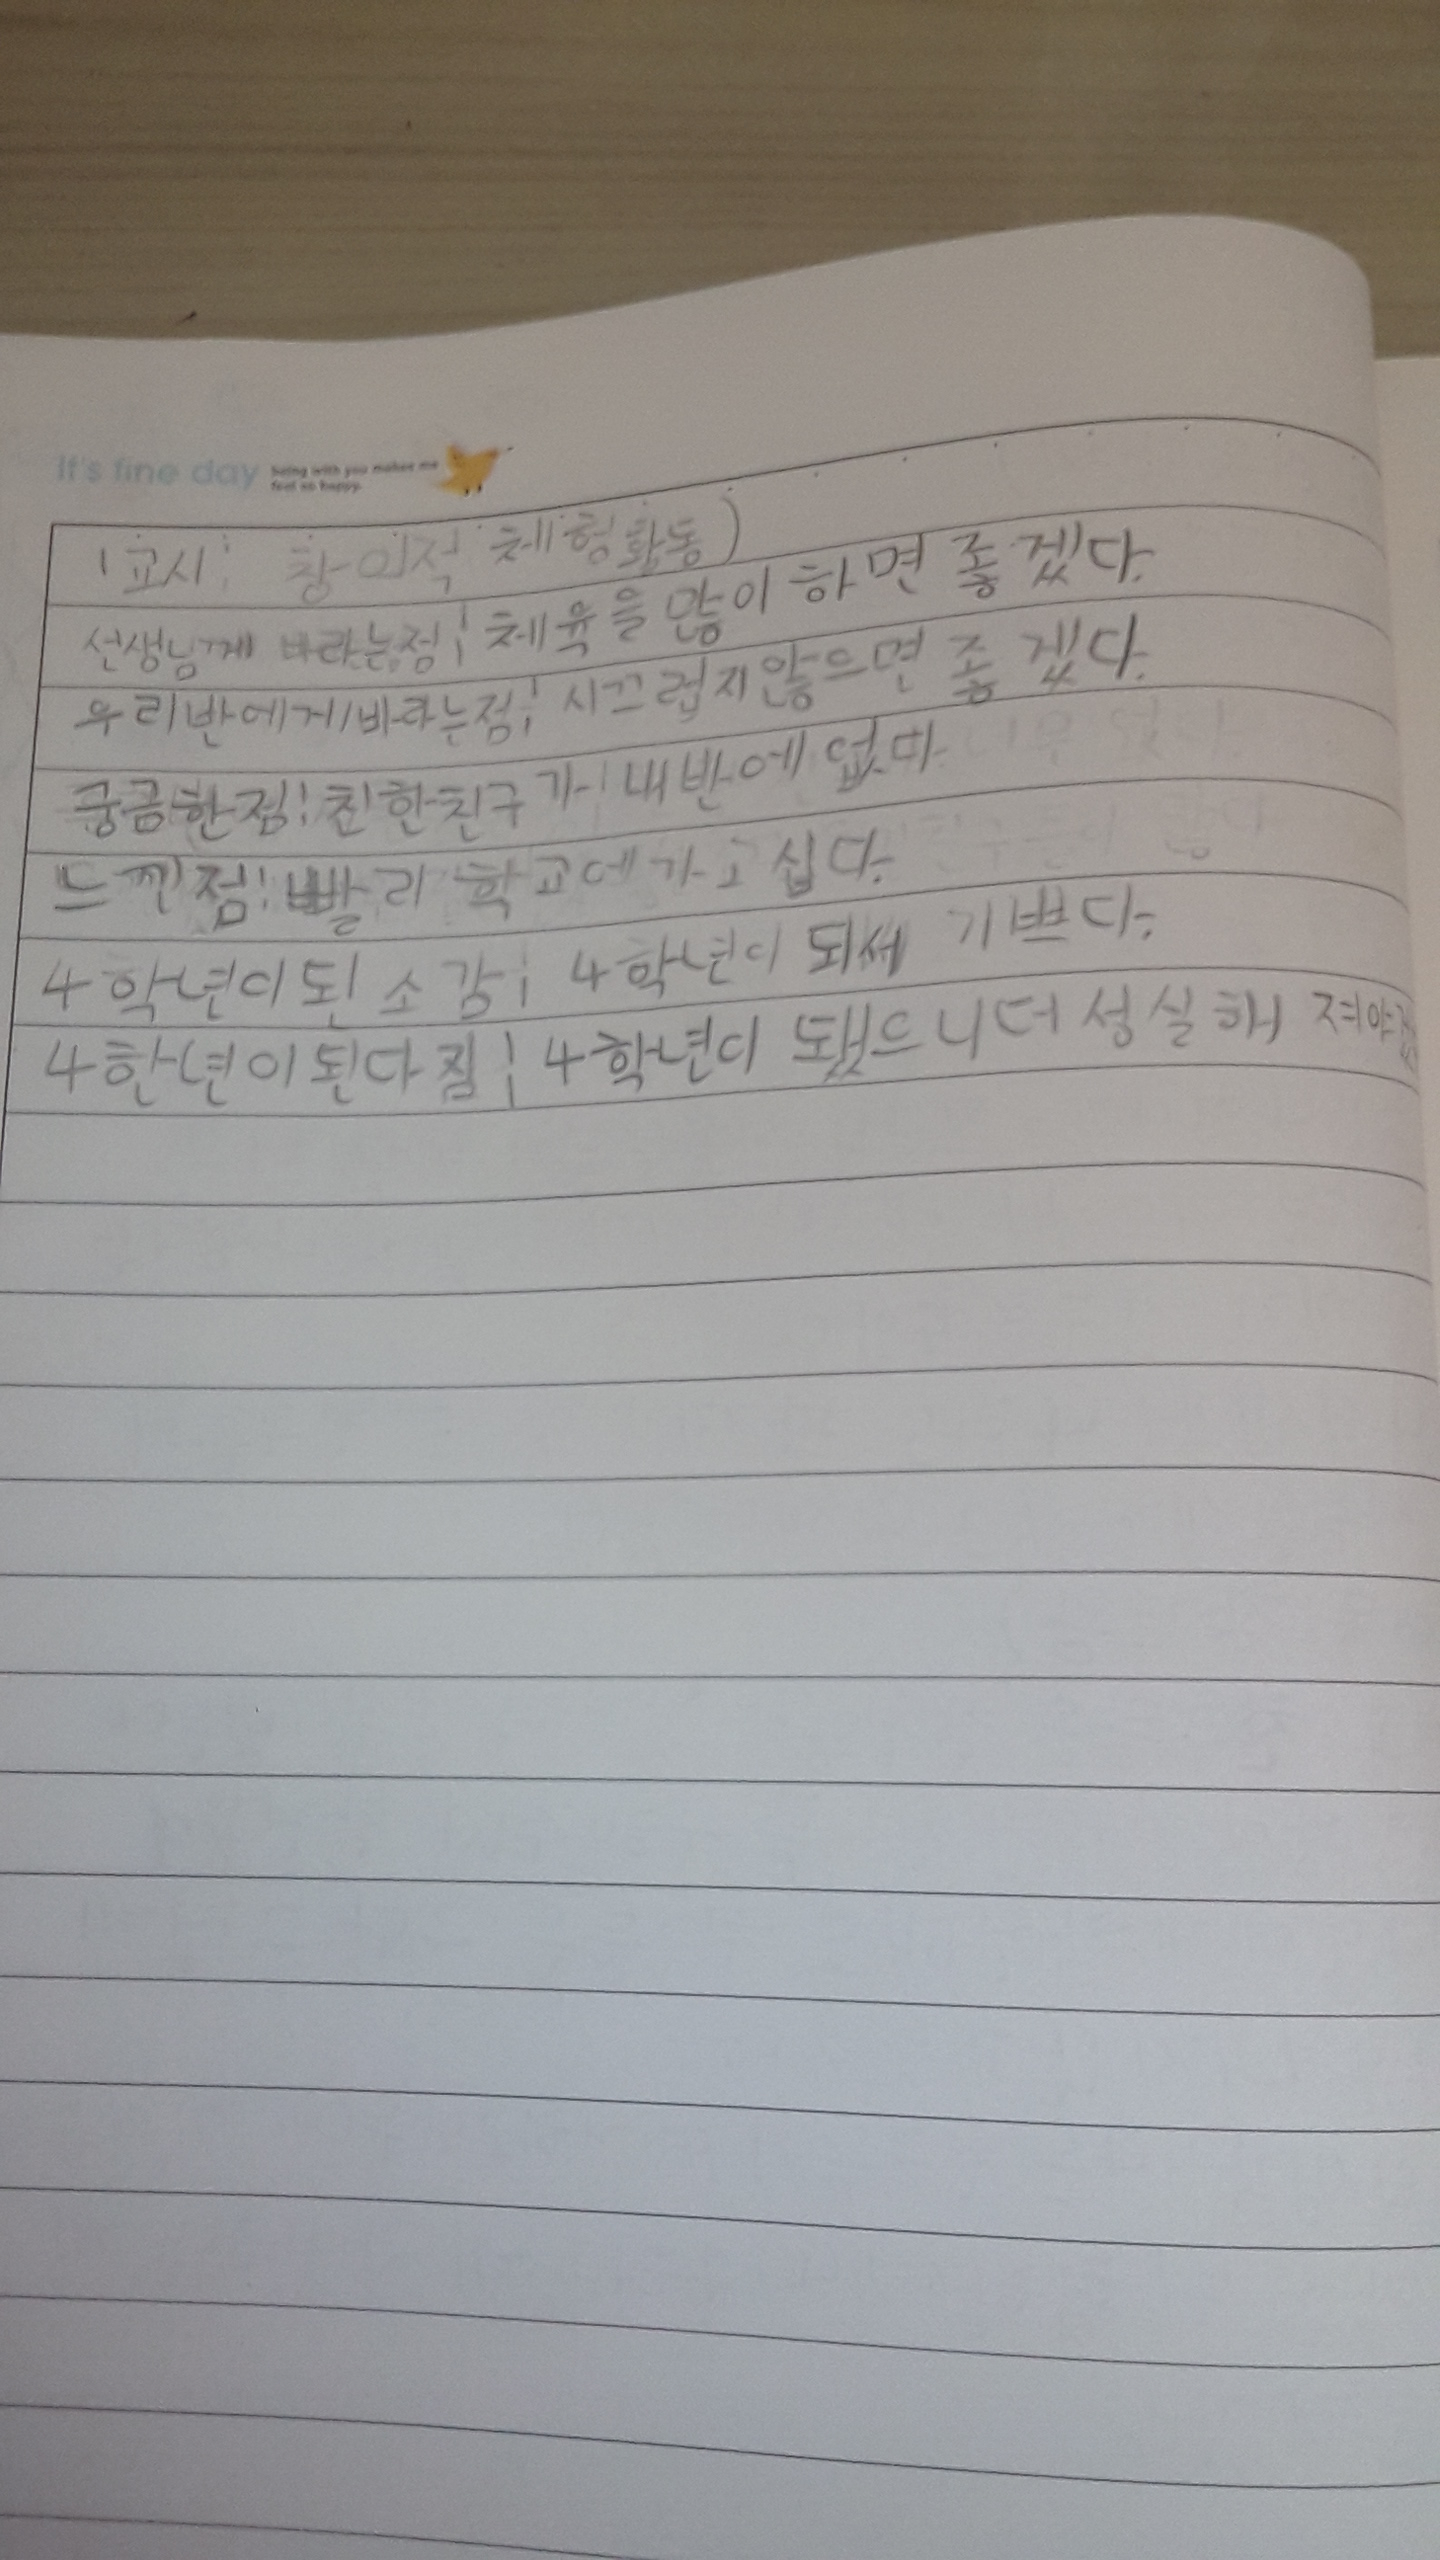 It's fine day
being with you makes me
feel so happy.
1교시: 창의적 체험활동)
선생님께 바라는점: 체육을 많이 하면 좋겠다.
우리반에게 바라는점: 시끄럽지않으면 좋겠다.
궁금한점: 친한친구가 내반에 없다.
느낀점: 빨리 학교에가고 십다.
4학년이된 소감: 4학년이 되써 기쁘다.
4한년이된다짐: 4학년이 됐으니더 성실해 져야겠